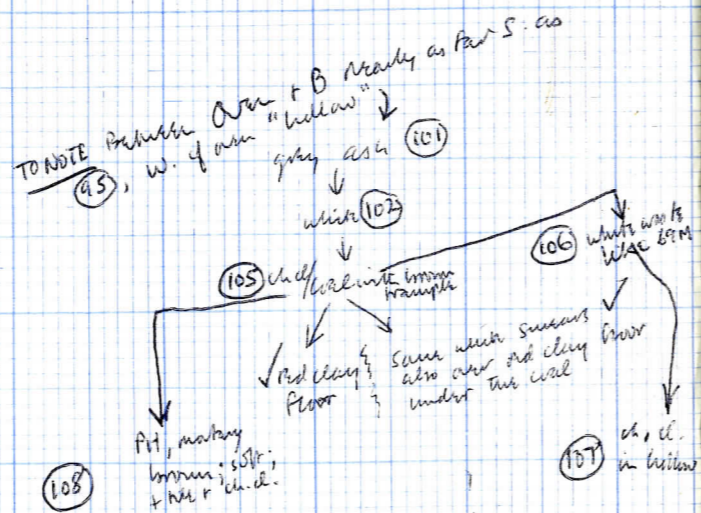 TO NOTE Between Oven + B nearly as far S. as
(95), W. of oven "hollow"
grey ash (101)
which (102)
(105) ch.cl/coal with brown
trample
(106) white
like 69M
✓ red clay
floor
some which smears
also over red clay floor
under the coal
(108) PH, mostly
brown; soft;
+ ch.cl.
(107) ch, cl.
in hollow